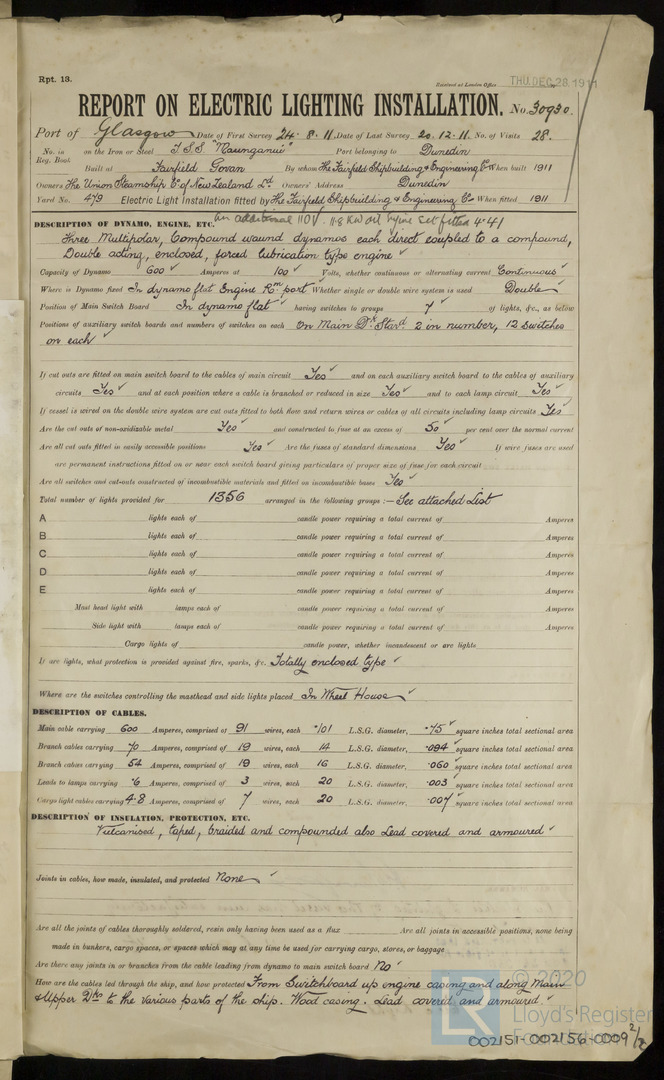 Rpt. 13.
Received at London Office THU. DEC. 28. 1911
REPORT ON ELECTRIC LIGHTING INSTALLATION. No. 30930.
Port of Glasgow Date of First Survey 24.8.11. Date of Last Survey 20.12.11. No. of Visits 28.
No. in Reg. Book on the Iron or Steel T.S.S. "Maunganui" Port belonging to Dunedin
Built at Fairfield Govan By whom The Fairfield Shipbuilding & Engineering Co. When built 1911
Owners The Union Steamship Co. of New Zealand Ld. Owners' Address Dunedin
Yard No. 479 Electric Light Installation fitted by The Fairfield Shipbuilding & Engineering Co. When fitted 1911
DESCRIPTION OF DYNAMO, ENGINE, ETC. an additional 110V. 11.8 KW set fitted 4.41
Three Multipolar, Compound wound dynamos each direct coupled to a compound,
Double acting, enclosed, forced lubrication type engine
Capacity of Dynamo 600 Amperes at 100 Volts, whether continuous or alternating current Continuous
Where is Dynamo fixed In dynamo flat Engine Rm port Whether single or double wire system is used Double
Position of Main Switch Board In dynamo flat having switches to groups 7 of lights, &c., as below
Positions of auxiliary switch boards and numbers of switches on each On Main Dk Stard 2 in number, 12 switches
on each
If cut outs are fitted on main switch board to the cables of main circuit Yes and on each auxiliary switch board to the cables of auxiliary
circuits Yes and at each position where a cable is branched or reduced in size Yes and to each lamp circuit Yes
If vessel is wired on the double wire system are cut outs fitted to both flow and return wires or cables of all circuits including lamp circuits Yes
Are the cut outs of non-oxidizable metal Yes and constructed to fuse at an excess of 50 per cent over the normal current
Are all cut outs fitted in easily accessible positions Yes Are the fuses of standard dimensions Yes If wire fuses are used
are permanent instructions fitted on or near each switch board giving particulars of proper size of fuse for each circuit
Are all switches and cut-outs constructed of incombustible materials and fitted on incombustible bases Yes
Total number of lights provided for 1356 arranged in the following groups :— See attached List
A lights each of candle power requiring a total current of Amperes
B lights each of candle power requiring a total current of Amperes
C lights each of candle power requiring a total current of Amperes
D lights each of candle power requiring a total current of Amperes
E lights each of candle power requiring a total current of Amperes
Mast head light with lamps each of candle power requiring a total current of Amperes
Side light with lamps each of candle power requiring a total current of Amperes
Cargo lights of candle power, whether incandescent or arc lights
If arc lights, what protection is provided against fire, sparks, &c. Totally enclosed type
Where are the switches controlling the masthead and side lights placed In Wheel House
DESCRIPTION OF CABLES.
Main cable carrying 600 Amperes, comprised of 91 wires, each .101 L.S.G. diameter, .75 square inches total sectional area
Branch cables carrying 70 Amperes, comprised of 19 wires, each 14 L.S.G. diameter, .094 square inches total sectional area
Branch cables carrying 54 Amperes, comprised of 19 wires, each 16 L.S.G. diameter, .060 square inches total sectional area
Leads to lamps carrying .6 Amperes, comprised of 3 wires, each 20 L.S.G. diameter, .003 square inches total sectional area
Cargo light cables carrying 4.8 Amperes, comprised of 7 wires, each 20 L.S.G. diameter, .007 square inches total sectional area
DESCRIPTION OF INSULATION, PROTECTION, ETC.
Vulcanised, taped, braided and compounded also Lead covered and armoured
Joints in cables, how made, insulated, and protected None
Are all the joints of cables thoroughly soldered, resin only having been used as a flux Are all joints in accessible positions, none being
made in bunkers, cargo spaces, or spaces which may at any time be used for carrying cargo, stores, or baggage
Are there any joints in or branches from the cable leading from dynamo to main switch board No
How are the cables led through the ship, and how protected From Switchboard up engine casing and along Main
& Upper Dks to the various parts of the ship. Wood casing. Lead covered and armoured.
LR
© 2020
Lloyd's Register
Foundation
002151-002156-0009 2/2